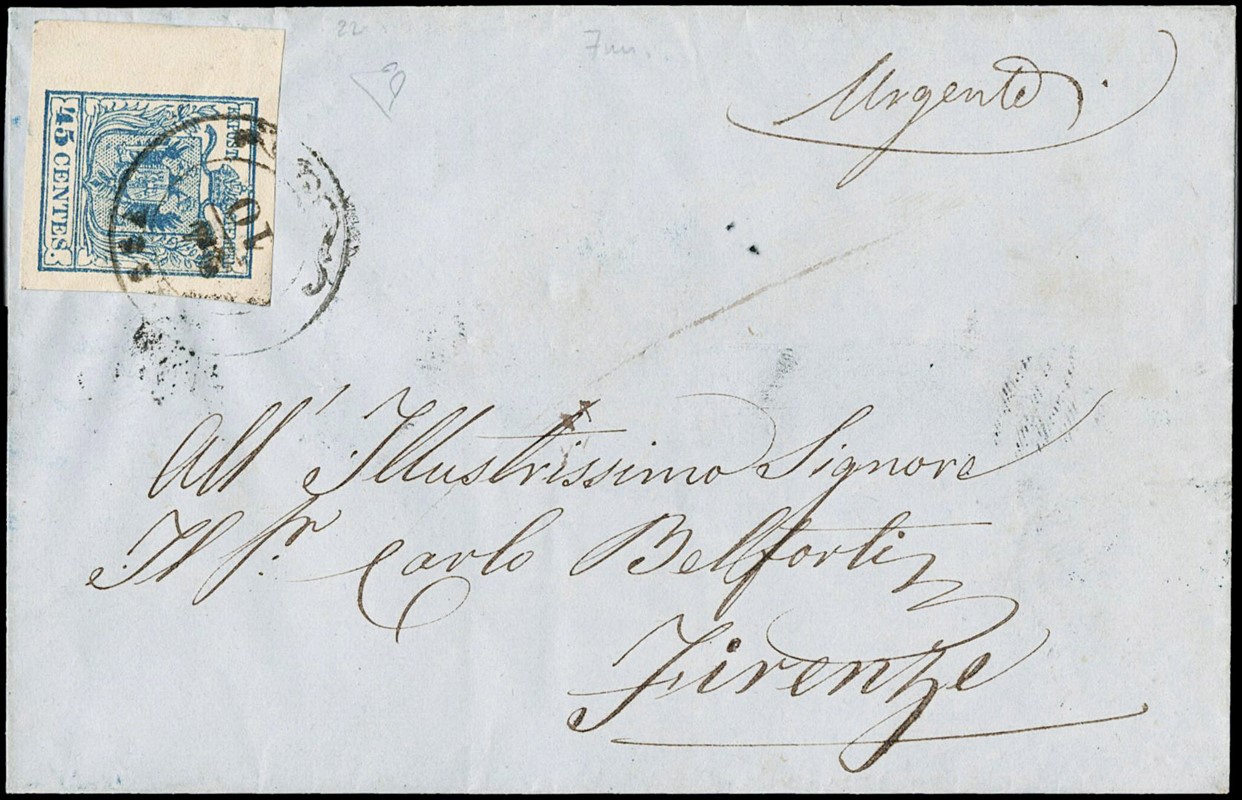 Urgente
45 CENTES
10
All' Illustrissimo Signore
Il Sr. Carlo Belforti
Firenze